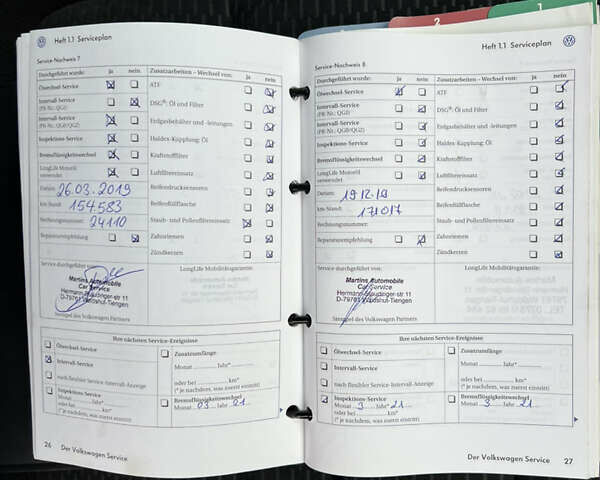 2
1
Heft 1.1 Serviceplan
Service-Nachweis 7
Durchgeführt wurde: ja nein Zusatzarbeiten – Wechsel von: ja nein
Ölwechsel-Service ATF
Intervall-Service (PR-Nr.: QG1) DSG®: Öl und Filter
Intervall-Service (PR-Nr.: QG0/QG2) Erdgasbehälter und -leitungen
Inspektions-Service Haldex-Kupplung: Öl
Bremsflüssigkeitswechsel Kraftstofffilter
LongLife Motoröl verwendet Luftfiltereinsatz
Datum: 26.03.2019 Reifendruckensoren
km-Stand: 154.583 Reifenfüllflasche
Rechnungsnummer: 24110 Staub- und Pollenfiltereinsatz
Reparaturempfehlung Zahnriemen
Zündkerzen
Service durchgeführt von: LongLife Mobilitätsgarantie:
Martins Automobile
Car Service
Hermann-Staudinger-str 11
D-79761 Waldshut-Tiengen
Stempel des Volkswagen Partners
Ihre nächsten Service-Ereignisse
Ölwechsel-Service Zusatzumfänge:
Intervall-Service Monat Jahr*
nach flexibler Service-Intervall-Anzeige oder bei km*
(* je nachdem, was zuerst eintritt)
Inspektions-Service Bremsflüssigkeitswechsel
Monat Jahr* Monat 03 Jahr 21
oder bei km*
(* je nachdem, was zuerst eintritt)
26 Der Volkswagen Service
Heft 1.1 Serviceplan
Service-Nachweis 8
Durchgeführt wurde: ja nein Zusatzarbeiten – Wechsel von: ja nein
Ölwechsel-Service ATF
Intervall-Service (PR-Nr.: QG1) DSG®: Öl und Filter
Intervall-Service (PR-Nr.: QG0/QG2) Erdgasbehälter und -leitungen
Inspektions-Service Haldex-Kupplung: Öl
Bremsflüssigkeitswechsel Kraftstofffilter
LongLife Motoröl verwendet Luftfiltereinsatz
Datum: Reifendruckensoren
km-Stand: 171017 Reifenfüllflasche
Rechnungsnummer: Staub- und Pollenfiltereinsatz
Reparaturempfehlung Zahnriemen
Zündkerzen
Service durchgeführt von: LongLife Mobilitätsgarantie:
Martins Automobile
Car Service
Hermann-Staudinger-str 11
D-79761 Waldshut-Tiengen
Stempel des Volkswagen Partners
Ihre nächsten Service-Ereignisse
Ölwechsel-Service Zusatzumfänge:
Intervall-Service Monat Jahr*
nach flexibler Service-Intervall-Anzeige oder bei km*
(* je nachdem, was zuerst eintritt)
Inspektions-Service Bremsflüssigkeitswechsel
Monat 3 Jahr 21 Monat 3 Jahr 21
oder bei km*
(* je nachdem, was zuerst eintritt)
Der Volkswagen Service 27